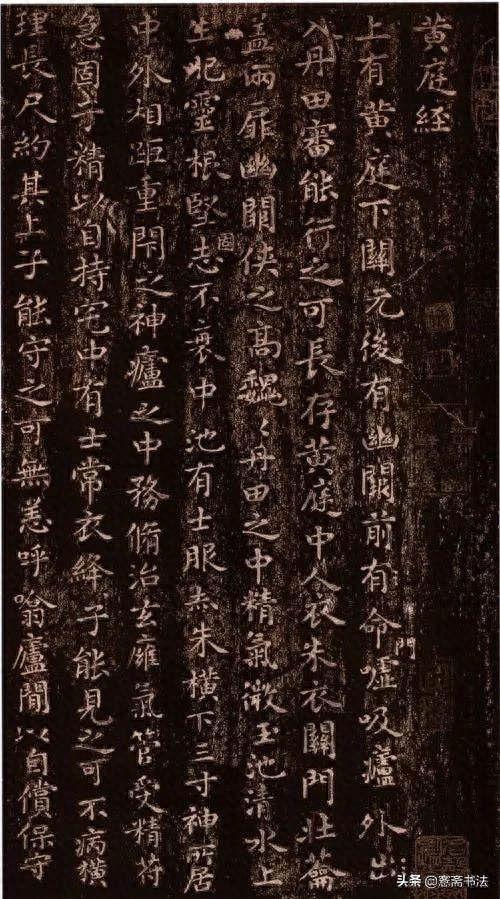 黄庭經
上有黄庭下關元後有幽闕前有命門噓吸廬外出
入丹田審能行之可長存黄庭中人衣朱衣關門壮籥
盖兩扉幽關俠之高巍〻丹田之中精氣微玉池清水上
生肥靈根堅固志不衰中池有士服赤朱橫下三寸神所居
中外相距重閇之神廬之中務脩治玄廱氣管受精符
急固子精以自持宅中有士常衣絳子能見之可不病橫
理長尺約其上子能守之可無恙呼噏廬間以自償保守
头条@悫斋书法